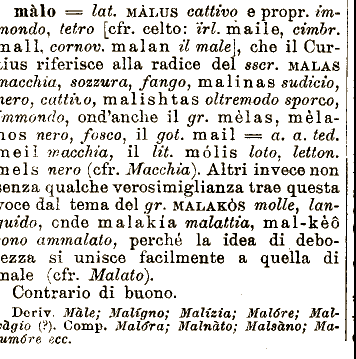 màlo = lat. MÀLUS cattivo e propr. im-
mondo, tetro [cfr. celto: irl. maile, cimbr.
mall, cornov. malan il male], che il Cur-
tius riferisce alla radice del sscr. MALAS
macchia, sozzura, fango, malinas sudicio,
nero, cattivo, malishtas oltremodo sporco,
immondo, ond'anche il gr. mèlas, mèla-
nos nero, fosco, il got. mail = a. a. ted.
meil macchia, il lit. mólis loto, letton.
mels nero (cfr. Macchia). Altri invece non
senza qualche verosimiglianza trae questa
voce dal tema del gr. MALAKÒS molle, lan-
guido, onde malakía malattia, mal-kèô
sono ammalato, perché la idea di debo-
lezza si unisce facilmente a quella di
male (cfr. Malato).
Contrario di buono.
Deriv. Màle; Malígno; Malízia; Malóre; Mal-
vàgio (?). Comp. Malóra; Malnàto; Malsàno; Ma-
lumóre ecc.